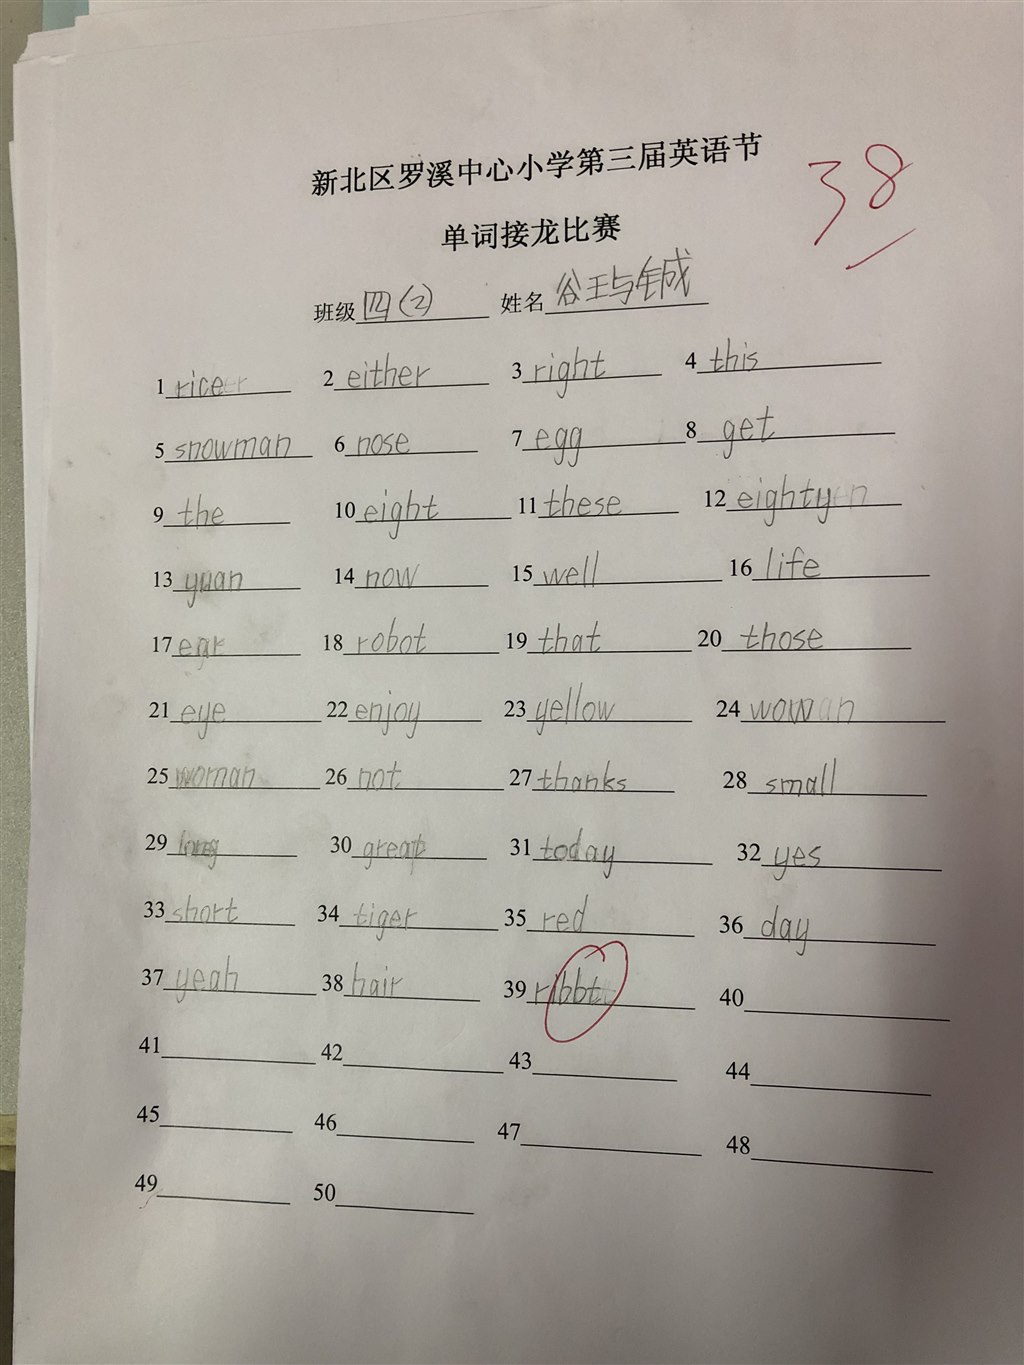 新北区罗溪中心小学第三届英语节
38
单词接龙比赛
班级 四(2) 姓名 谷王与铖
1 rice 2 either 3 right 4 this
5 snowman 6 nose 7 egg 8 get
9 the 10 eight 11 these 12 eighty
13 yuan 14 now 15 well 16 life
17 ear 18 robot 19 that 20 those
21 eye 22 enjoy 23 yellow 24 wow
25 woman 26 not 27 thanks 28 small
29 long 30 great 31 today 32 yes
33 short 34 tiger 35 red 36 day
37 yeah 38 hair 39 ribbt 40
41 42 43 44
45 46 47 48
49 50